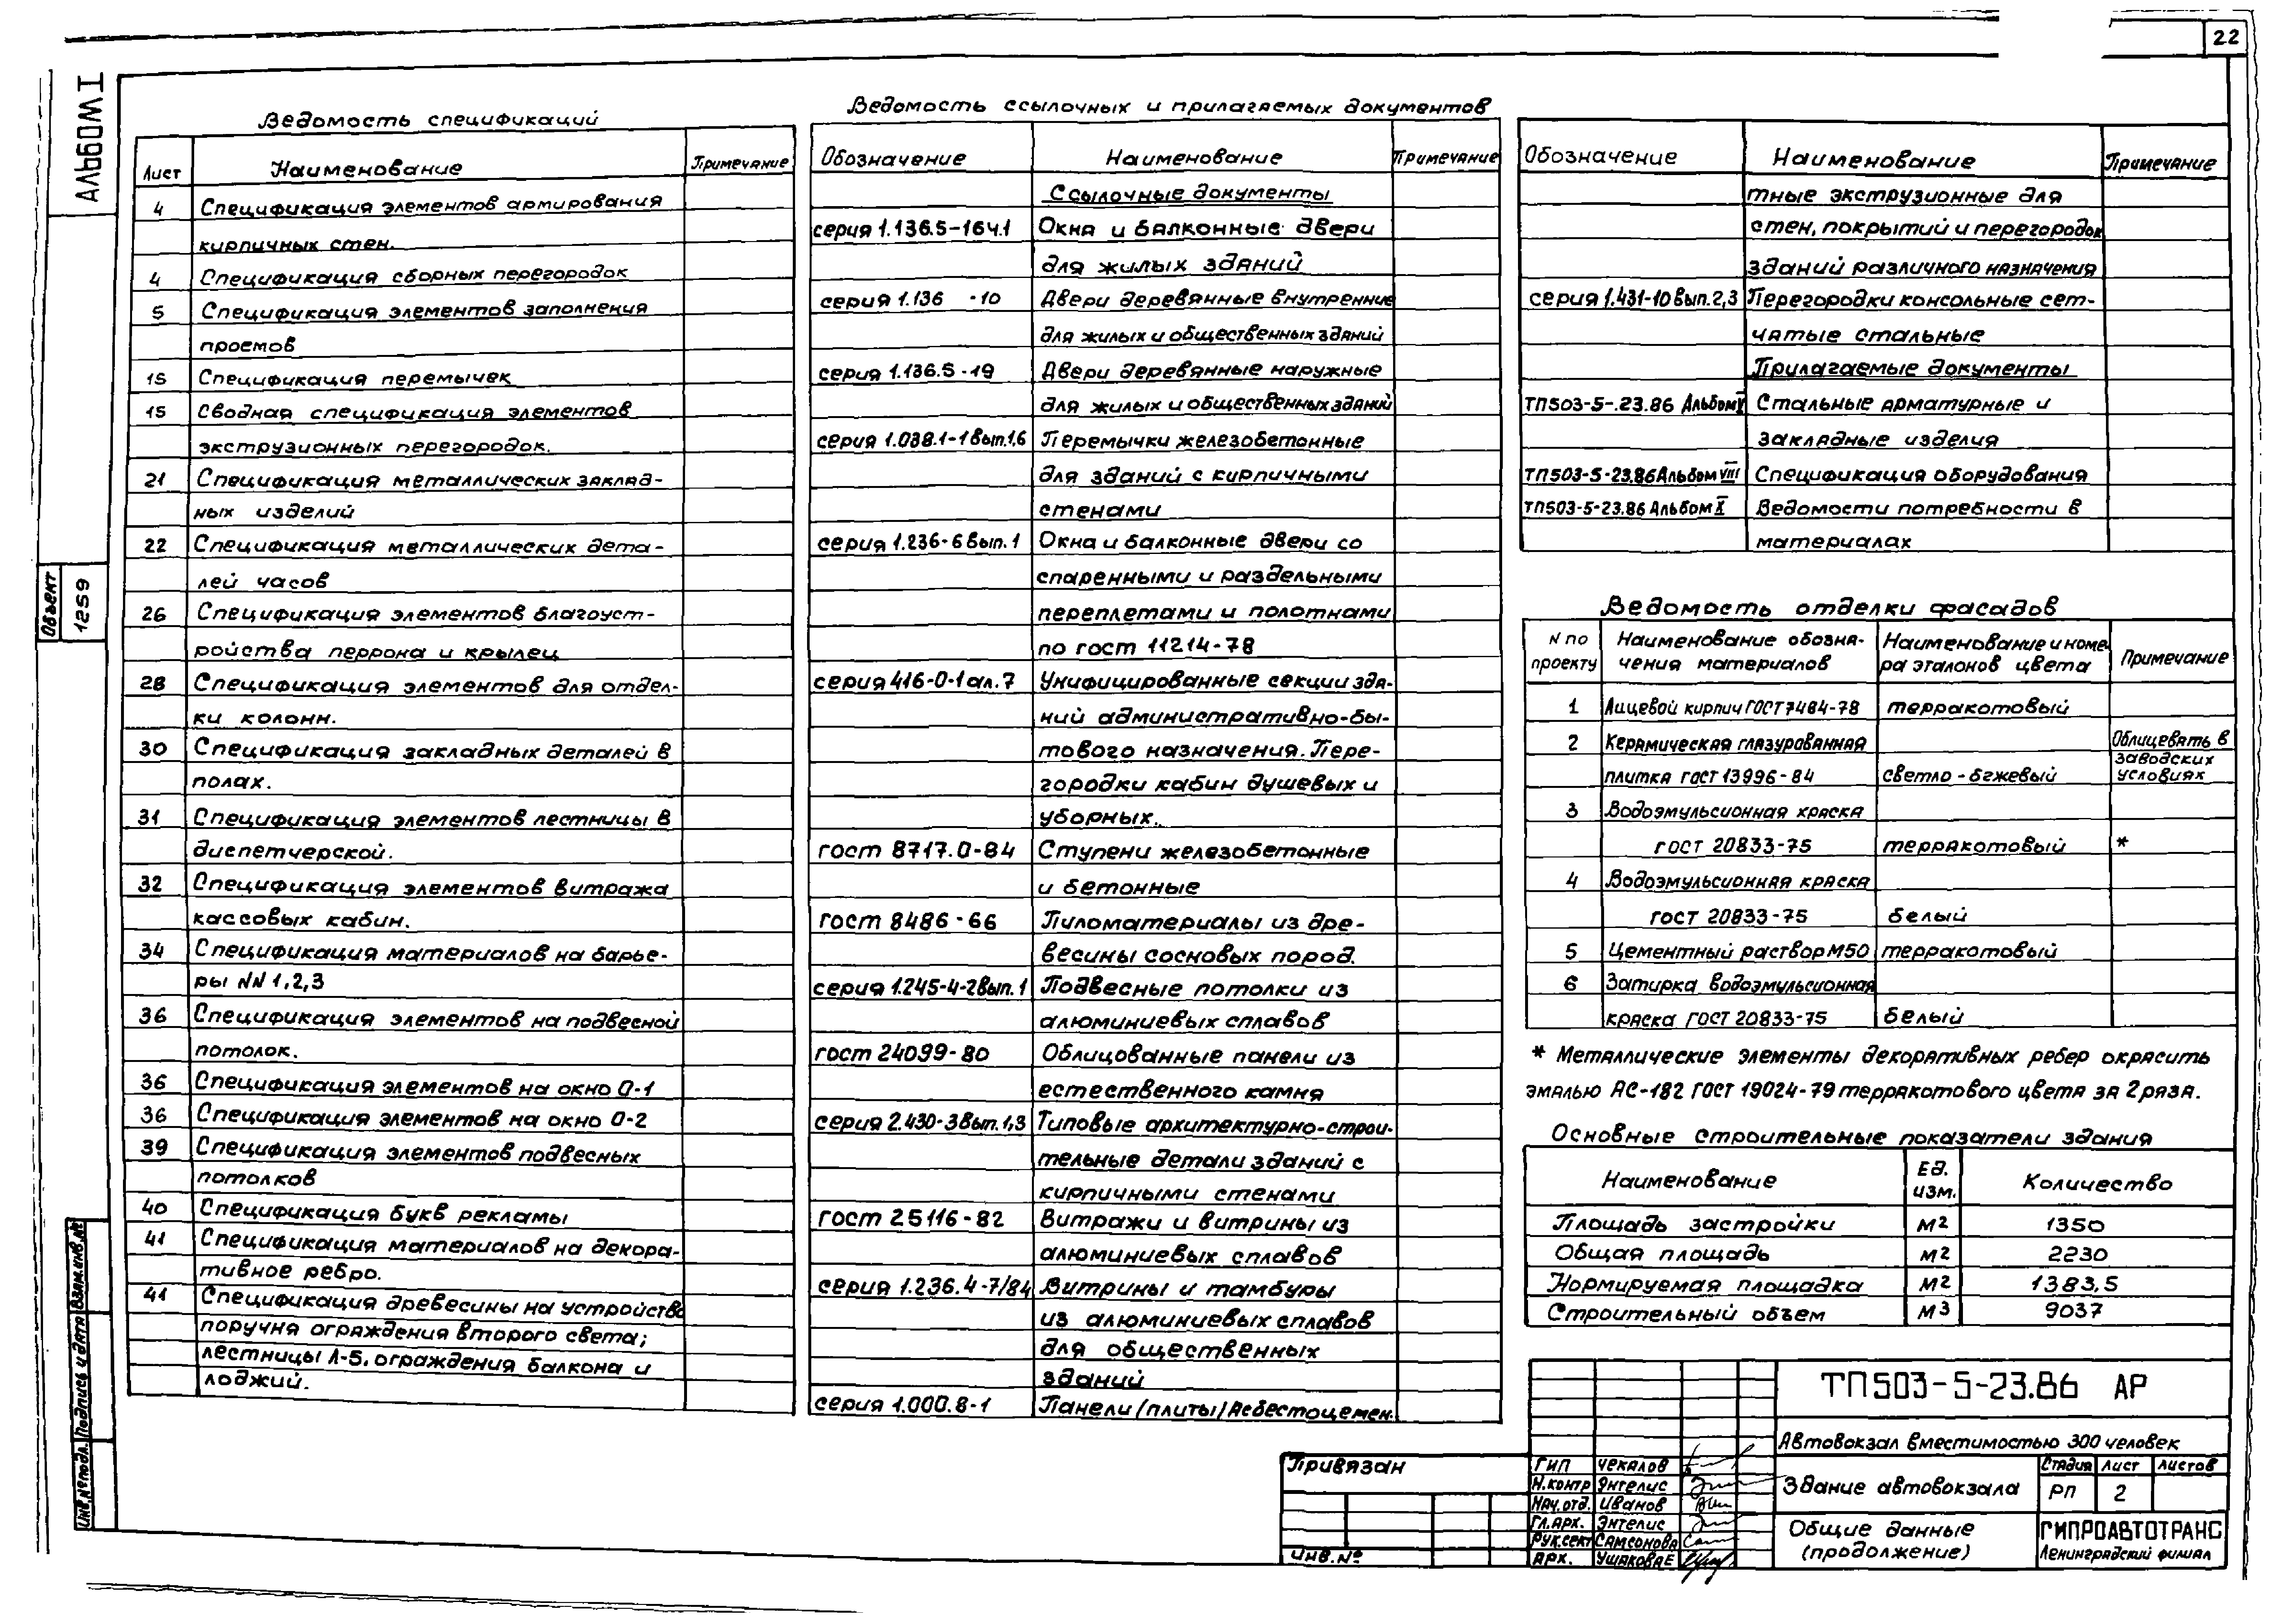 22
Альбом I
Объект
1259
Взам.инв.№
Подпись и дата
Инв.№подл.
Ведомость спецификаций
Лист Наименование Примечание
4 Спецификация элементов армирования
кирпичных стен.
4 Спецификация сборных перегородок
5 Спецификация элементов заполнения
проемов
15 Спецификация перемычек
15 Сводная спецификация элементов
экструзионных перегородок.
21 Спецификация металлических заклад-
ных изделий
22 Спецификация металлических дета-
лей часов
26 Спецификация элементов благоуст-
ройства перрона и крылец
28 Спецификация элементов для отдел-
ки колонн.
30 Спецификация закладных деталей в
полах.
31 Спецификация элементов лестницы в
диспетчерской.
32 Спецификация элементов витража
кассовых кабин.
34 Спецификация материалов на барье-
ры NN 1,2,3
36 Спецификация элементов на подвесной
потолок.
36 Спецификация элементов на окно О-1
36 Спецификация элементов на окно О-2
39 Спецификация элементов подвесных
потолков
40 Спецификация букв рекламы
41 Спецификация материалов на декора-
тивное ребро.
41 Спецификация древесины на устройство
поручня ограждения второго света;
лестницы Л-5, ограждения балкона и
лоджий.
Ведомость ссылочных и прилагаемых документов
Обозначение Наименование Примечание
Ссылочные документы
серия 1.136.5-16ч.1 Окна и балконные двери
для жилых зданий
серия 1.136 -10 Двери деревянные внутренние
для жилых и общественных зданий
серия 1.136.5-19 Двери деревянные наружные
для жилых и общественных зданий
серия 1.038.1-1 вып.1,6 Перемычки железобетонные
для зданий с кирпичными
стенами
серия 1.236-6 вып.1 Окна и балконные двери со
спаренными и раздельными
переплетами и полотнами
по гост 11214-78
серия 416-0-1 ал.7 Унифицированные секции зда-
ний административно-бы-
тового назначения. Пере-
городки кабин душевых и
уборных.
гост 8717.0-84 Ступени железобетонные
и бетонные
гост 8486-66 Пиломатериалы из дре-
весины сосновых пород.
серия 1.245-4-2 вып.1 Подвесные потолки из
алюминиевых сплавов
гост 24099-80 Облицованные панели из
естественного камня
серия 2.430-3 вып.1,3 Типовые архитектурно-строи-
тельные детали зданий с
кирпичными стенами
гост 25116-82 Витражи и витрины из
алюминиевых сплавов
серия 1.236.4-7/84 Витрины и тамбуры
из алюминиевых сплавов
для общественных
зданий
серия 1.000.8-1 Панели /плиты/ асбестоцемен-
Обозначение Наименование Примечание
тные экструзионные для
стен, покрытий и перегородок
зданий различного назначения
серия 1.431-10 вып.2,3 Перегородки консольные сет-
чатые стальные
Прилагаемые документы
ТП503-5-.23.86 Альбом V Стальные арматурные и
закладные изделия
ТП503-5-23.86 Альбом VIII Спецификация оборудования
ТП503-5-23.86 Альбом X Ведомости потребности в
материалах
Ведомость отделки фасадов
N по проекту Наименование обозна- Наименование и номе- Примечание
чения материалов ра эталонов цвета
1 Лицевой кирпич ГОСТ 7484-78 терракотовый
2 Керамическая глазурованная Облицевать в
плитка гост 13996-84 светло-бежевый заводских условиях
3 Водоэмульсионная краска
гост 20833-75 терракотовый *
4 Водоэмульсионная краска
гост 20833-75 белый
5 Цементный раствор М50 терракотовый
6 Затирка водоэмульсионная
краска ГОСТ 20833-75 белый
* Металлические элементы декоративных ребер окрасить
эмалью АС-182 ГОСТ 19024-79 терракотового цвета за 2 раза.
Основные строительные показатели здания
Наименование Ед. изм. Количество
Площадь застройки м2 1350
Общая площадь м2 2230
Нормируемая площадка м2 1383,5
Строительный объем м3 9037
Привязан
Инв.№
ТП503-5-23.86 АР
Автовокзал вместимостью 300 человек
ГИП Чекалов
Н.контр Энгелис
Нач.отд. Иванов
Гл.арх. Энгелис
Рук.сект Самсонова
Арх. Ушакова Е
Здание автовокзала
Стадия Лист Листов
РП 2
Общие данные
(продолжение)
ГИПРОАВТОТРАНС
Ленинградский филиал